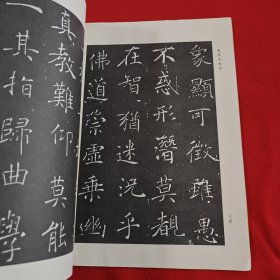 象顯可徵雖愚
不惑形潛莫覩
在智猶迷況乎
佛道崇虛乘幽
真教難仰莫能
一其指歸曲學